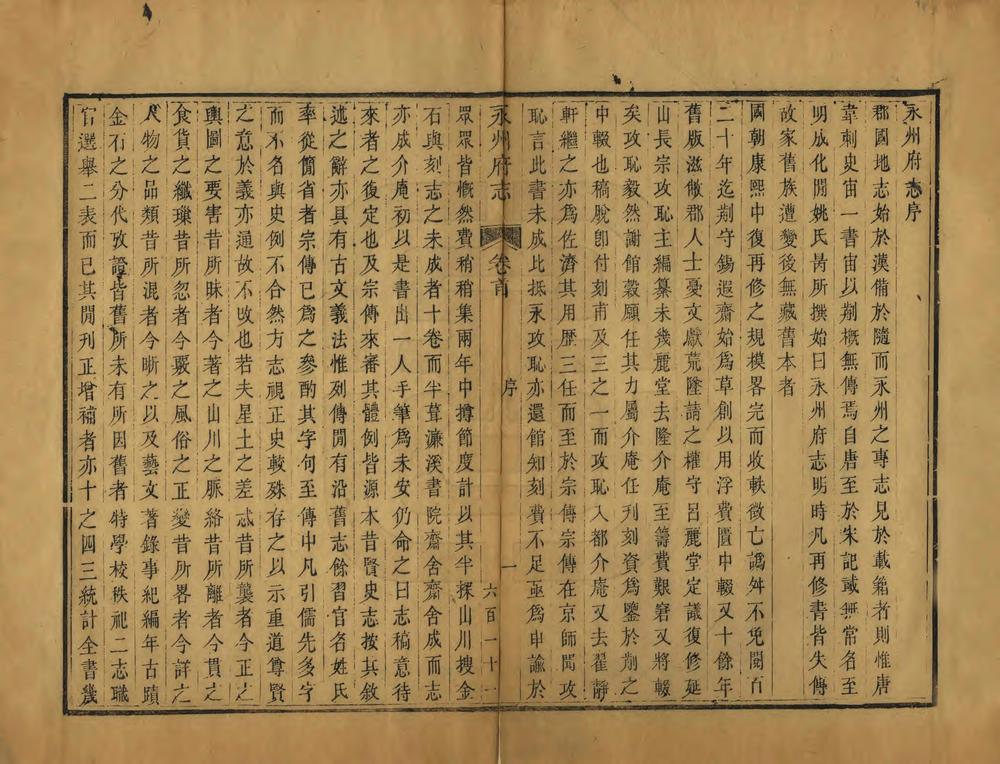 永州府志序
郡國地志始於漢備於隨而永州之專志見於載籍者則惟唐
韋刺史宙一書宙以剏概無傳焉自唐至於宋記諴無常名至
明成化間姚氏昺所撰始曰永州府志明時凡再修書皆失傳
故家舊族遭變後無藏舊本者
國朝康熙中復再修之規模畧完而收軼徵亡譌舛不免閱百
二十年迄剏守錫遐齋始爲草創以用浮費匱中輟又十餘年
舊版滋敝郡人士憂文獻荒墜請之權守呂麗堂定議復修延
山長宗攻恥主編纂未幾麗堂去隆介庵至籌費艱窘又將輟
矣攻恥毅然謝館穀願任其力屬介庵任刊刻資爲鑒於前之
中輟也稿脫卽付刻甫及三之一而攻恥入都介庵又去翟靜
軒繼之亦爲佐濟其用歷三任而至於宗傳宗傳在京師聞攻
恥言此書未成比抵永攻恥亦還館知刻費不足亟爲申諭於
永州府志 卷首 序 一 六百一十一
眾眾皆慨然費稍稍集兩年中撙節度計以其半探山川搜金
石與刻志之未成者十卷而半葺濂溪書院齋舍齋舍成而志
亦成介庵初以是書出一人手筆爲未安仍命之曰志稿意待
來者之復定也及宗傳來審其體例皆源本昔賢史志按其敘
述之辭亦具有古文義法惟列傳閒有沿舊志餘習官名姓氏
率從簡省者宗傳已爲之參酌其字句至傳中凡引儒先多字
而不名與史例不合然方志視正史較殊存之以示重道尊賢
之意於義亦通故不改也若夫星土之差忒昔所襲者今正之
輿圖之要害昔所昧者今著之山川之脈絡昔所離者今貫之
食貨之纖璅昔所忽者今覈之風俗之正變昔所畧者今詳之
人物之品類昔所混者今晰之以及藝文著錄事紀編年古蹟
金石之分代攷證皆舊所未有所因舊者特學校秩祀二志職
官選舉二表而已其閒刊正增補者亦十之四三統計全書幾